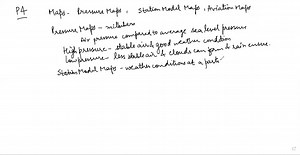 P4 Maps - Pressure Maps, Station Model Maps, Aviation Maps
Pressure Maps -
Air pressure compared to average sea level pressure
High pressure - stable air & good weather condition
Low pressure - less stable air & clouds can form & rain ensue.
Station Model Maps - weather conditions at a parti